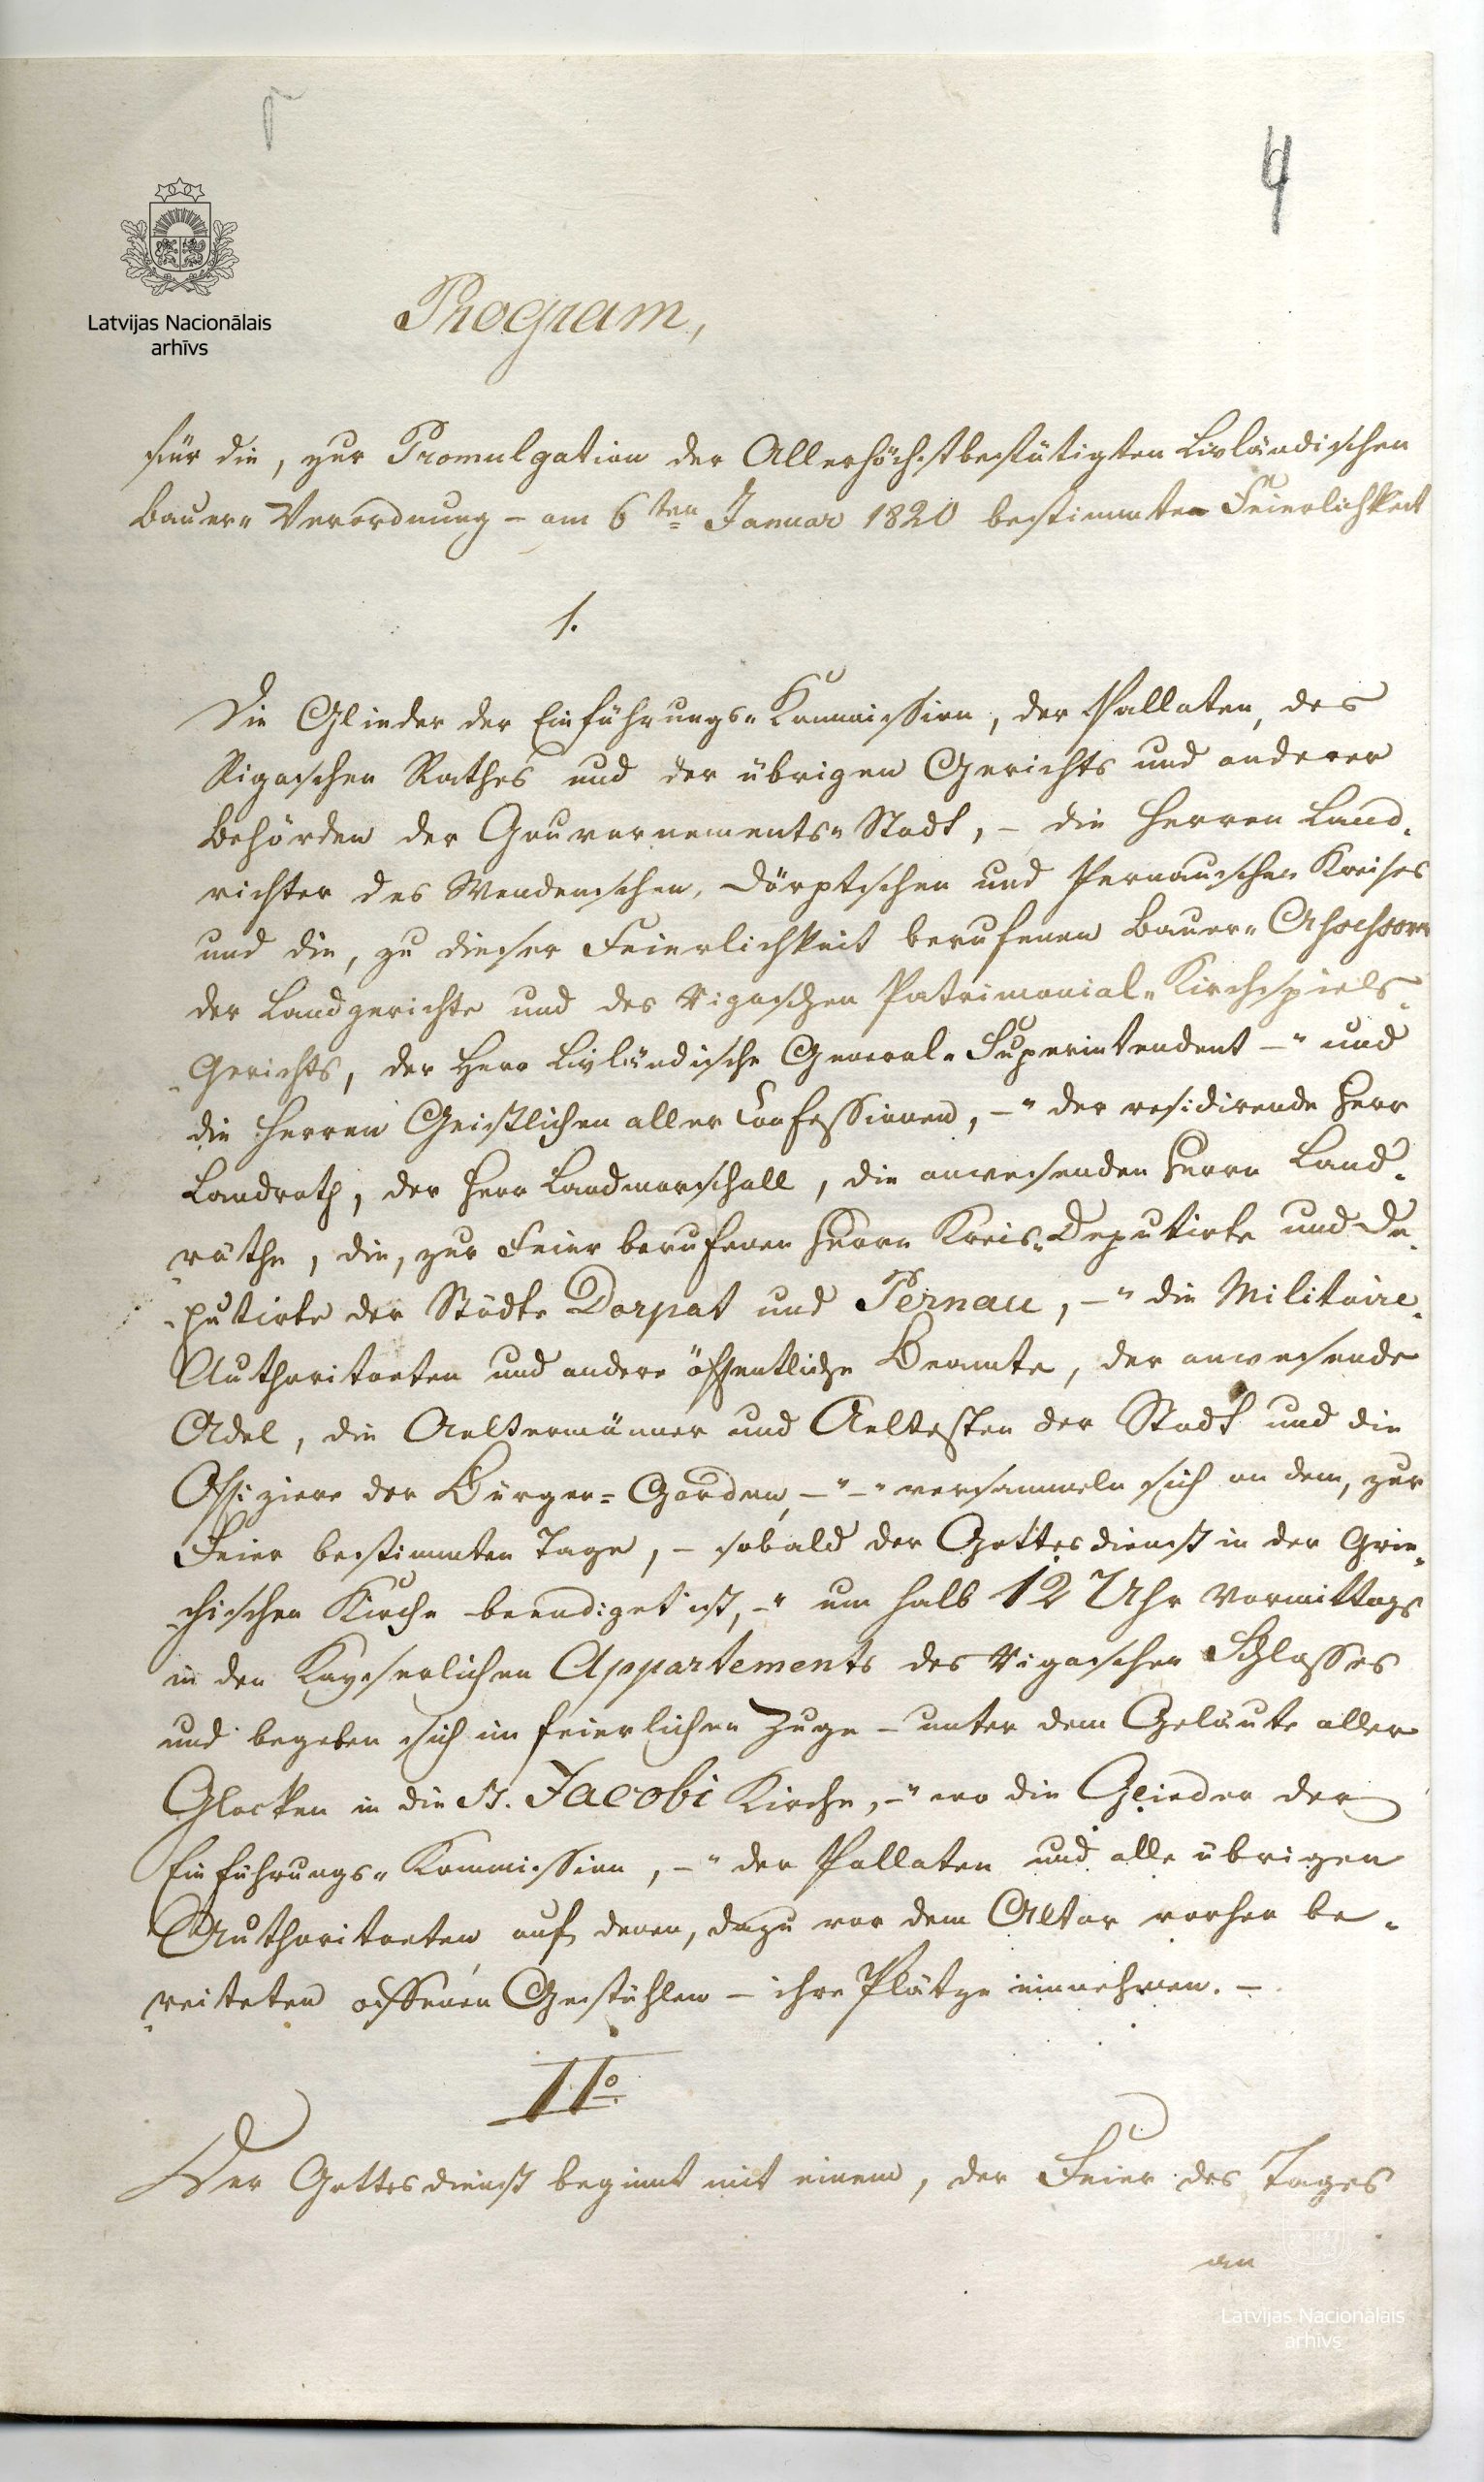 4
Latvijas Nacionālais
arhīvs
Program,
für die, zur Promulgation der Allerhöchstbestätigten Livländischen
Bauer-Verordnung - am 6ten Januar 1820 bestimmten Feierlichkeit
1.
Die Glieder der Einführungs-Kommission, der Pallaten, des
Rigaschen Rathes und der übrigen Gerichts und anderer
Behörden der Gouvernements-Stadt, - die Herren Land-
richter des Wendenschen, Dörptschen und Pernauschen Kreises
und die, zu dieser Feierlichkeit berufenen Bauer-Assessoren
der Landgerichte und des Rigaschen Patrimonial-Kirchspiels-
Gerichts, der Herr Livländische General-Superintendent - und
die Herren Geistlichen aller Confessionen, - der residirende Herr
Landrath, der Herr Landmarschall, die anwesenden Herrn Land-
räthe, die, zur Feier berufenen Herrn Kreis-Deputirte und De-
putirte der Städte Dorpat und Pernau, - die Militaire-
Authoritaeten und andere öffentliche Beamte, der anwesende
Adel, die Aeltermänner und Aeltesten der Stadt und die
Offiziere der Bürger-Garden, - - versammeln sich an dem, zur
Feier bestimmten Tage, - sobald der Gottesdienst in der Grie-
chischen Kirche beendiget ist, - um halb 12 Uhr Vormittags
in den Kayserlichen Appartements des Rigaschen Schlosses
und begeben sich im feierlichen Zuge - unter dem Geläute aller
Glocken in die St. Jacobi Kirche, - wo die Glieder der
Einführungs-Kommission, - der Pallaten und alle übrigen
Authoritaeten auf denen, dazu vor dem Altar vorher be-
reiteten offenen Gestühlen - ihre Plätze einnehmen. -
IIo
Der Gottesdienst beginnt mit einem, der Feier des Tages
an
Latvijas Nacionālais
arhīvs